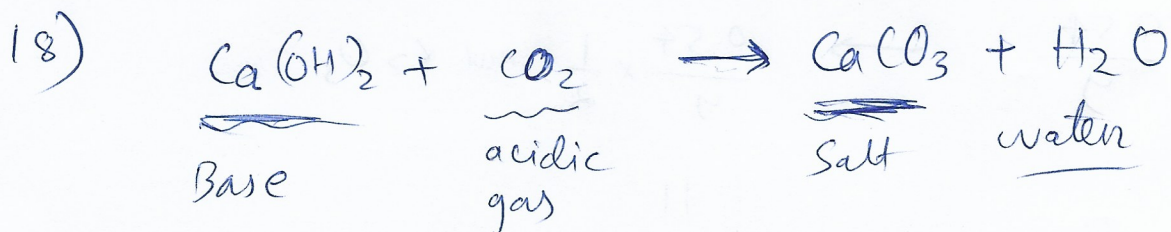 18) Ca(OH)2 + CO2 → CaCO3 + H2O
Base acidic gas Salt water